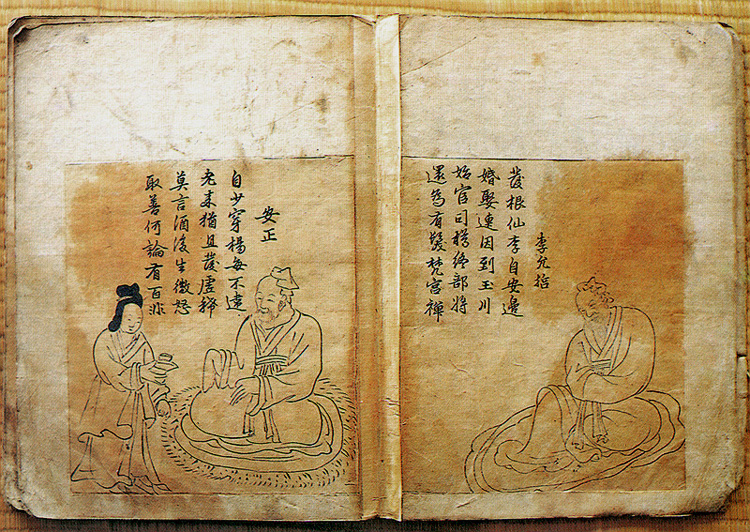 李允
根仙李自安邊
婚娶連因到玉川
始官司終部將
還為有髮梵宮禪
安正
自少穿楊每不
老來猶且發虛
莫言酒後生微怒
取善何論有百非